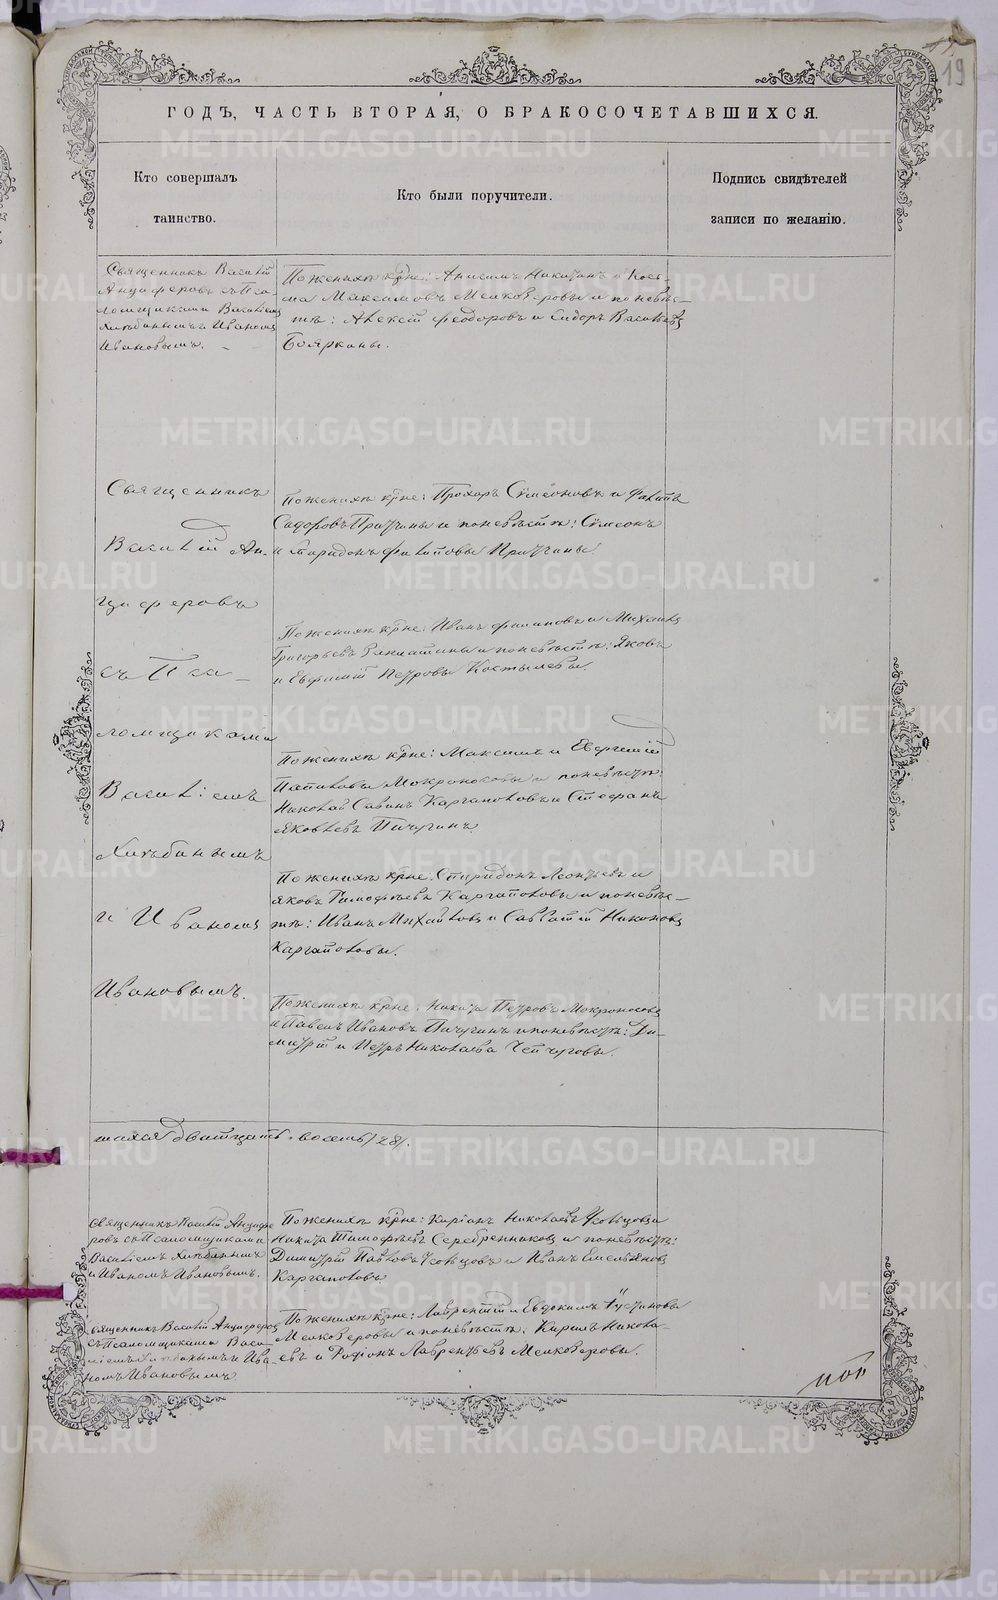 19
ГОДЪ, ЧАСТЬ ВТОРАЯ, О БРАКОСОЧЕТАВШИХСЯ.
Кто совершалъ
таинство.
Кто были поручители.
Подпись свидѣтелей
записи по желанію.
Священникъ Василій
Анциферовъ съ Пса-
ломщиками Василіемъ
Хлѣбинымъ и Иваномъ
Ивановымъ.
По женихѣ крне: Анисимъ Никитинъ и Кось-
ма Максимовъ Мелкозеровы и по невѣс-
тѣ: Алексѣй Феодоровъ и Сидоръ Васильевъ
Бояркины.
Священникъ
Василій Ан-
циферовъ
съ Пса-
ломщиками
Василіемъ
Хлѣбинымъ
и Иваномъ
Ивановымъ.
По женихѣ крне: Прохоръ Сѵмеоновъ и Филипъ
Сидоровъ Пичугины и по невѣстѣ: Сѵмеонъ
и Спиридонъ Филиповы Пичугины.
По женихѣ крне: Иванъ Филиповъ и Михаилъ
Григорьевъ и по невѣстѣ: Яковъ
и Евфимій Петровы Костылевы.
По женихѣ крне: Максимъ и Евгеній
Мокроносовы и по невѣстѣ:
Николай Савинъ Каргаполовъ и Стефанъ
Яковлевъ Пичугинъ
По женихѣ крне: Спиридонъ Леонтьевъ и
Яковъ Тимофеевъ Каргаполовы и по невѣс-
тѣ: Иванъ Михайловъ и Савватій Никоновъ
Каргаполовы.
По женихѣ крне: Никита Петровъ Мокроносовъ
и Павелъ Ивановъ Пичугинъ и по невѣстѣ: Ди-
митрій и Петръ Николаевы Чепчуговы.
дватцать восемь /28/.
Священникъ Василій Анцифе
ровъ съ Псаломщиками
Василіемъ Хлѣбинымъ
и Иваномъ Ивановымъ.
По женихѣ крне: Киріанъ Николаевъ Усольцовъ и
Никита Тимофѣевъ Серебренниковъ и по невѣстѣ:
Димитрій Павловъ Усольцовъ и Иванъ Емельяновъ
Каргаполовъ
Священникъ Василій Анциферовъ
съ Псаломщиками Васи-
ліемъ Хлѣбинымъ и Ива-
номъ Ивановымъ
По женихѣ крне: Лаврентій и Евдокимъ Устиновы
Мелкозеровы и по невѣстѣ: Кирилъ Никола-
евъ и Родіонъ Лаврентьевъ Мелкозеровы.
METRIKI.GASO-URAL.RU